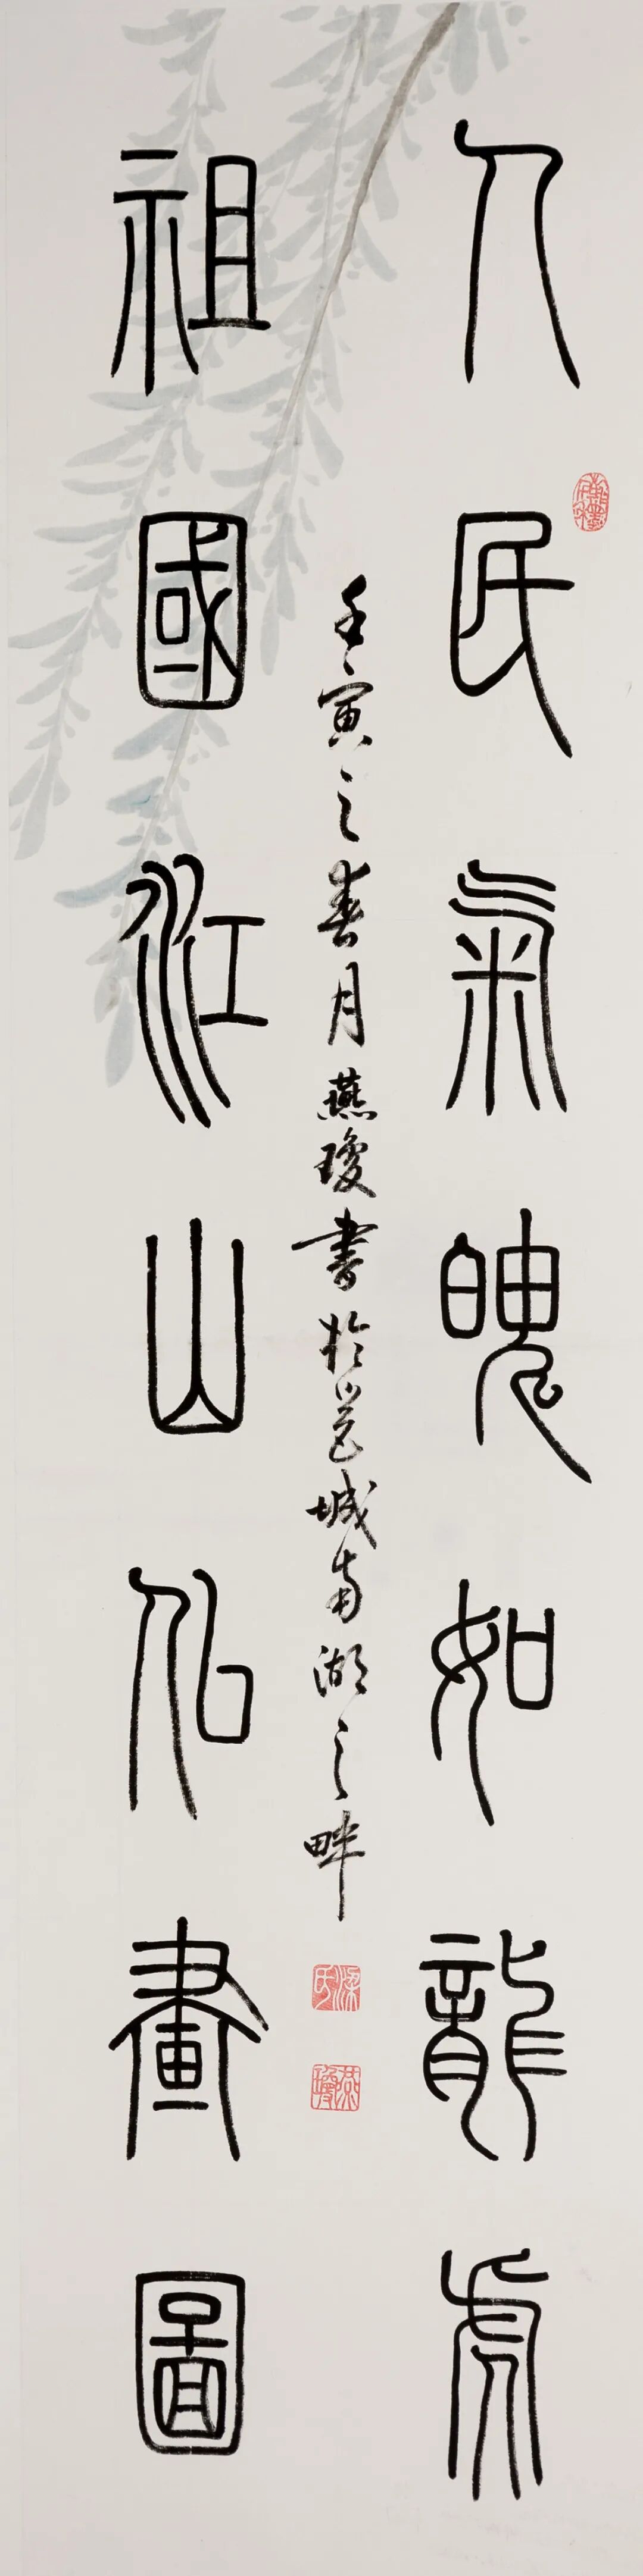 人民氣魄如龍虎
祖國江山似畫圖
壬寅之春月燕瓊書於邕城南湖之畔
梁氏
燕瓊